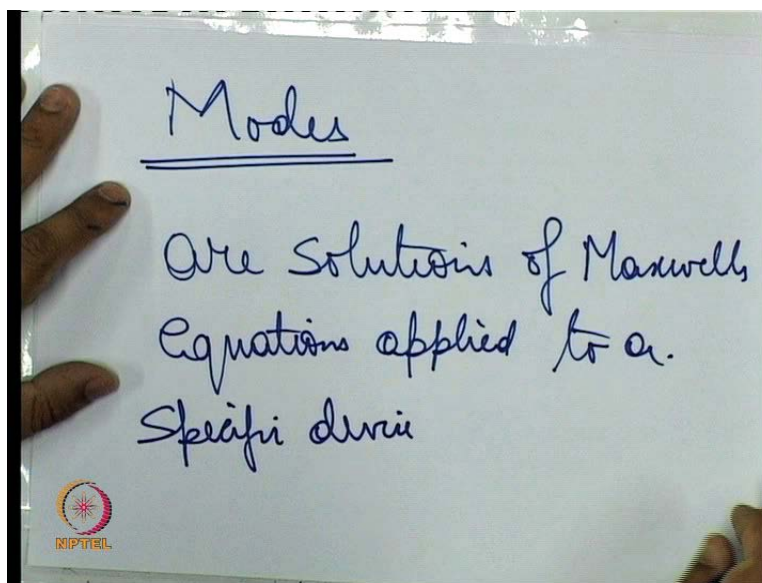 Modes
are Solutions of Maxwells
Equations applied to a.
Specific device
NPTEL